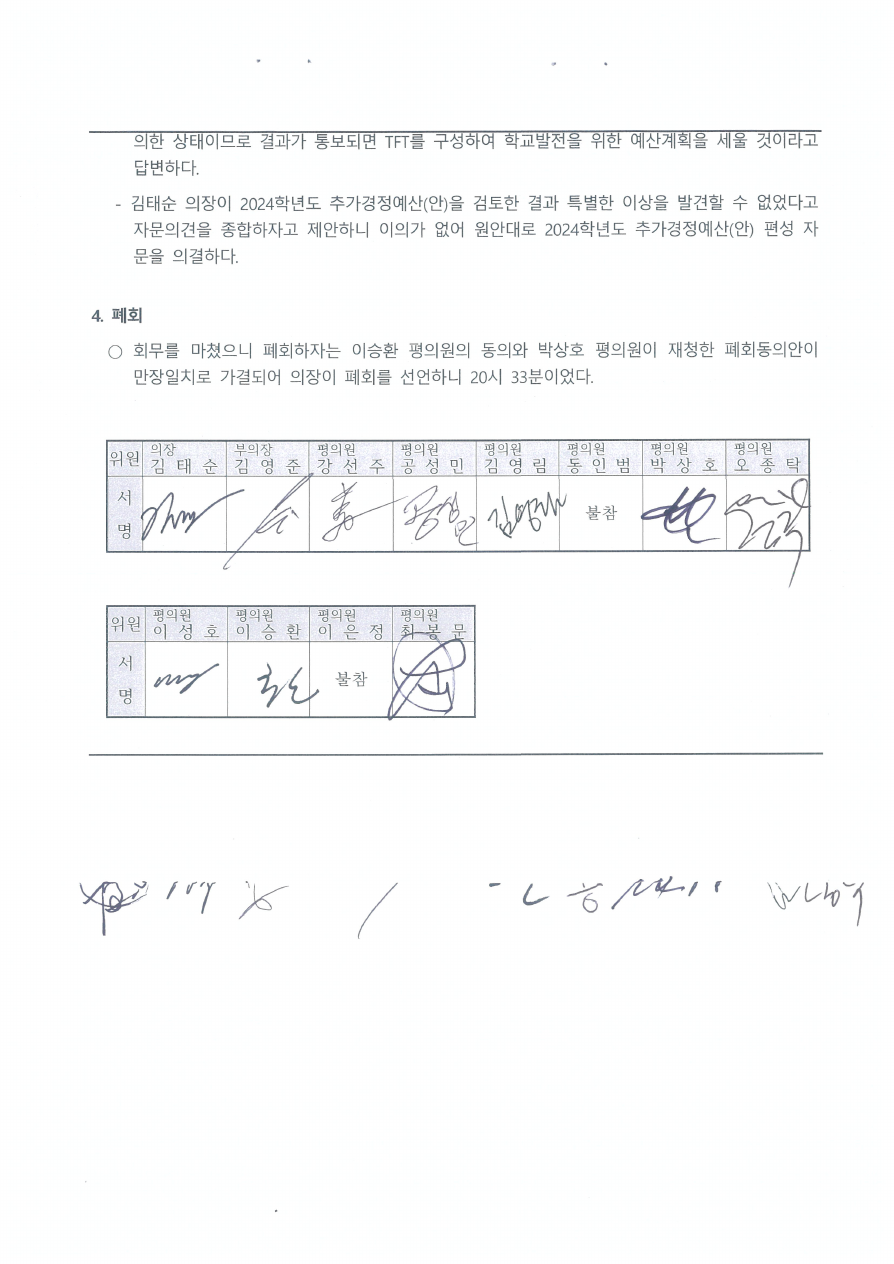 의한 상태이므로 결과가 통보되면 TFT를 구성하여 학교발전을 위한 예산계획을 세울 것이라고
답변하다.
- 김태순 의장이 2024학년도 추가경정예산(안)을 검토한 결과 특별한 이상을 발견할 수 없었다고
자문의견을 종합하자고 제안하니 이의가 없어 원안대로 2024학년도 추가경정예산(안) 편성 자
문을 의결하다.
4. 폐회
○ 회무를 마쳤으니 폐회하자는 이승환 평의원의 동의와 박상호 평의원이 재청한 폐회동의안이
만장일치로 가결되어 의장이 폐회를 선언하니 20시 33분이었다.
위원 의장 부의장 평의원 평의원 평의원 평의원 평의원 평의원
김 태 순 김 영 준 강 선 주 공 성 민 김 영 림 동 인 범 박 상 호 오 종 탁
서
명
불참
위원 평의원 평의원 평의원 평의원
이 성 호 이 승 환 이 은 정 최 봉 문
서
명
불참